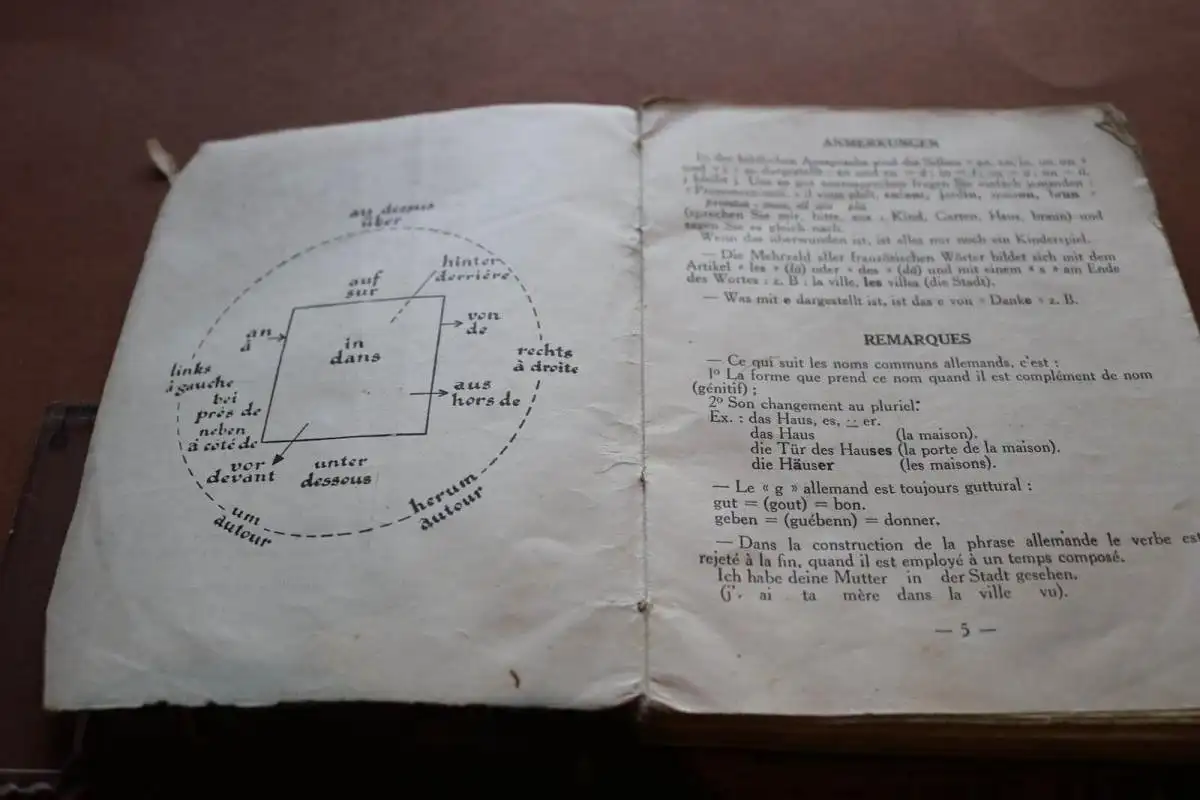 au dessus
über
hinter
derrière
auf
sur
an
à
von
de
in
dans
links
à gauche
rechts
à droite
bei
près de
aus
hors de
neben
à côté de
vor
devant
unter
dessous
herum
autour
um
autour
ANMERKUNGEN
(sprechen Sie mir, bitte, aus : Kind, Garten, Haus, braun) und
sagen Sie es gleich nach.
Wenn das überwunden ist, ist alles nur noch ein Kinderspiel.
— Die Mehrzahl aller französischen Wörter bildet sich mit dem
Artikel « les » (lä) oder « des » (dä) und mit einem « s » am Ende
des Wortes : z. B : la ville, les villes (die Stadt).
— Was mit e dargestellt ist, ist das e von « Danke » z. B.
REMARQUES
— Ce qui suit les noms communs allemands, c'est :
1º La forme que prend ce nom quand il est complément de nom
(génitif) ;
2º Son changement au pluriel:
Ex. : das Haus, es, er.
das Haus (la maison).
die Tür des Hauses (la porte de la maison).
die Häuser (les maisons).
— Le « g » allemand est toujours guttural :
gut = (gout) = bon.
geben = (guébenn) = donner.
— Dans la construction de la phrase allemande le verbe est
rejeté à la fin, quand il est employé à un temps composé.
Ich habe deine Mutter in der Stadt gesehen.
(j'. ai ta mère dans la ville vu).
— 5 —